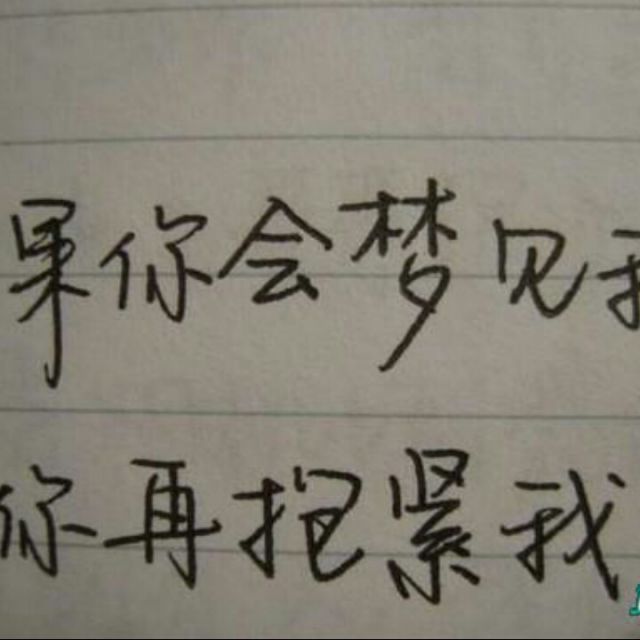 果你会梦见我
你再抱紧我